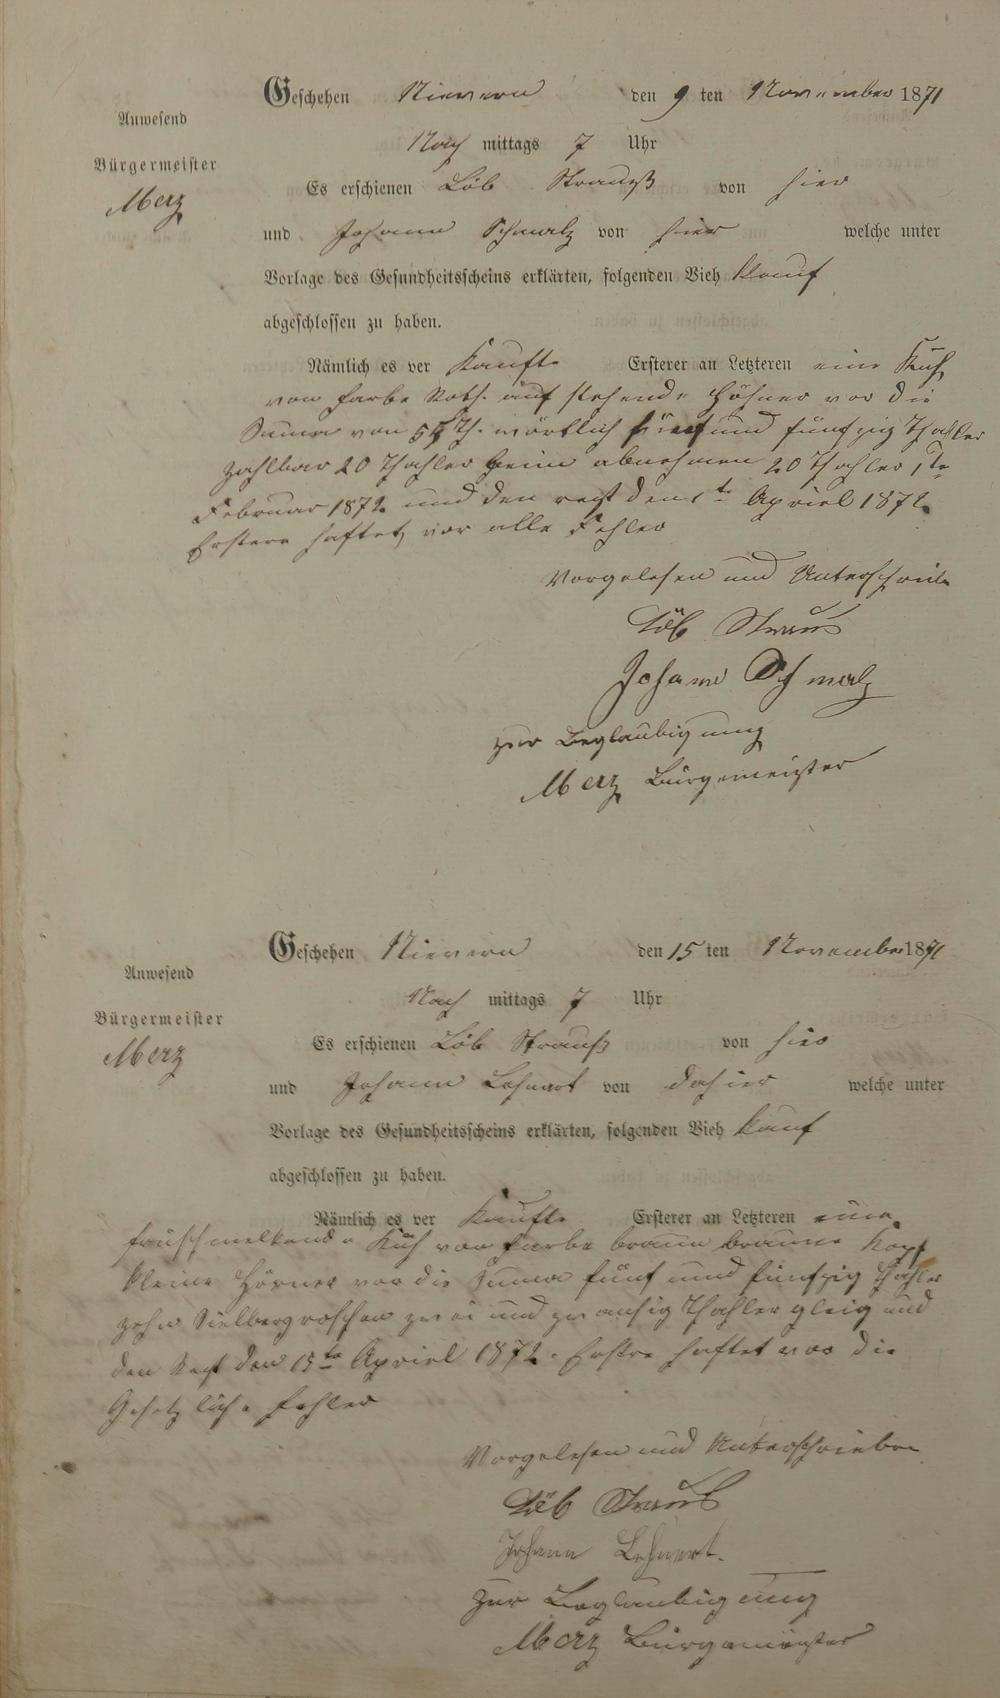 Geschehen Nievern den 9 ten November 1871
Anwesend
Nach mittags 7 Uhr
Bürgermeister
Es erschienen Löb Strauß von hier
Merz
und Johann Schmalz von hier welche unter
Vorlage des Gesundheitsscheins erklärten, folgenden Vieh Kauf
abgeschlossen zu haben.
Nämlich es ver Kaufte Ersterer an Letzteren eine Kuh
von Farbe Roth auf stehende Höhner vor die
Suma von 55 Th. wörtlich fünf und fünfzig Thahler
zahlbar 20 Thahler beim abnehmen 20 Thahler 1te
Februar 1872 und den rest den 1te Apriel 1872
Erstere haftet vor alle Fehler
Vorgelesen und Unterschrieb
Löb Straus
Johann Schmalz
zur Beglaubigung
Merz Bürgemeister
Geschehen Nievern den 15 ten November 1871
Anwesend
Nach mittags 7 Uhr
Bürgermeister
Es erschienen Löb Strauß von hier
Merz
und Johann Lehnert von dahier welche unter
Vorlage des Gesundheitsscheins erklärten, folgenden Vieh Kauf
abgeschlossen zu haben.
Nämlich es ver Kaufte Ersterer an Letzteren eine
frischmelkende Kuh von Farbe braun braune Kopf
kleine Hörner vor die Suma fünf und fünfzig Thahler
zehn Sielbergroschen zwei und zwansig Thahler gleig und
den Rest den 15te Apriel 1872. Erstre haftet vor die
Gesetzliche Fehler
Vorgelesen und Unterschrieben
Löb Straus
Johann Lehnert.
zur Beglaubigung
Merz Bürgemeister